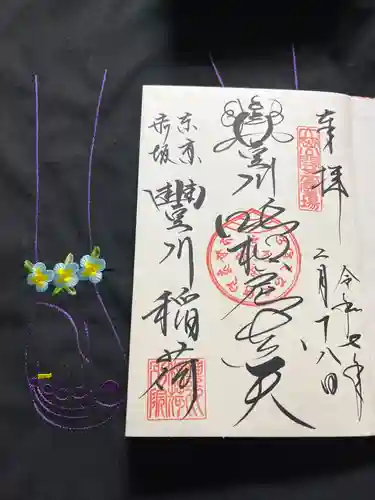 奉拝
令和七年
二月十八日
豐川吒枳尼真天
東京
赤坂
豐川稲荷